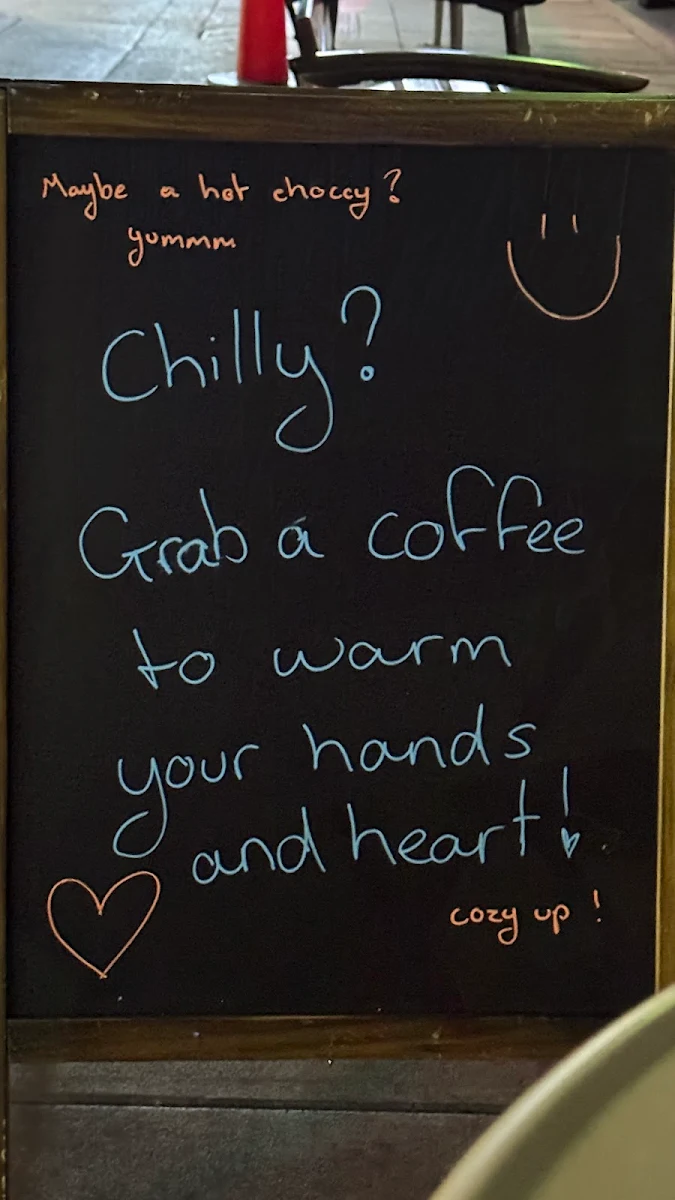 Maybe a hot choccy?
yummm
Chilly?
Grab a coffee
to warm
your hands
and heart!
cozy up !